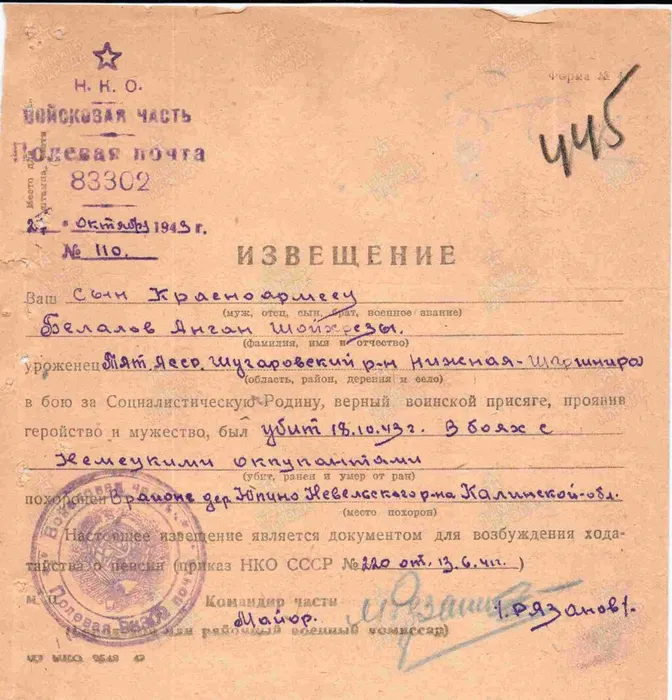 Форма № 4
445
Н. К. О.
ВОЙСКОВАЯ ЧАСТЬ
Полевая почта
83302
Место для штампа
" Октября 1943 г.
№ 110.
ИЗВЕЩЕНИЕ
Ваш Сын Красноармеец
(муж, отец, сын, брат, военное звание)
Белалов Анган Шойхрезы.
(фамилия, имя и отчество)
уроженец Тат. Асср. Шугаровский р-н Нижная-
(область, район, деревня и село)
в бою за Социалистическую Родину, верный воинской присяге, проявив
геройство и мужество, был убит 18.10.43г. В боях с
Немецкими оккупантами
(убит, ранен и умер от ран)
похоронен В районе дер. Юпино Невельского р-на Калинской-обл.
(место похорон)
Настоящее извещение является документом для возбуждения хода-
тайства о пенсии (приказ НКО СССР № 220 от. 13.6.41г. )
М. П.
Командир части
Майор.
/.Рязанов/.
районный военный комиссар)
Войсковая часть
Полевая почта